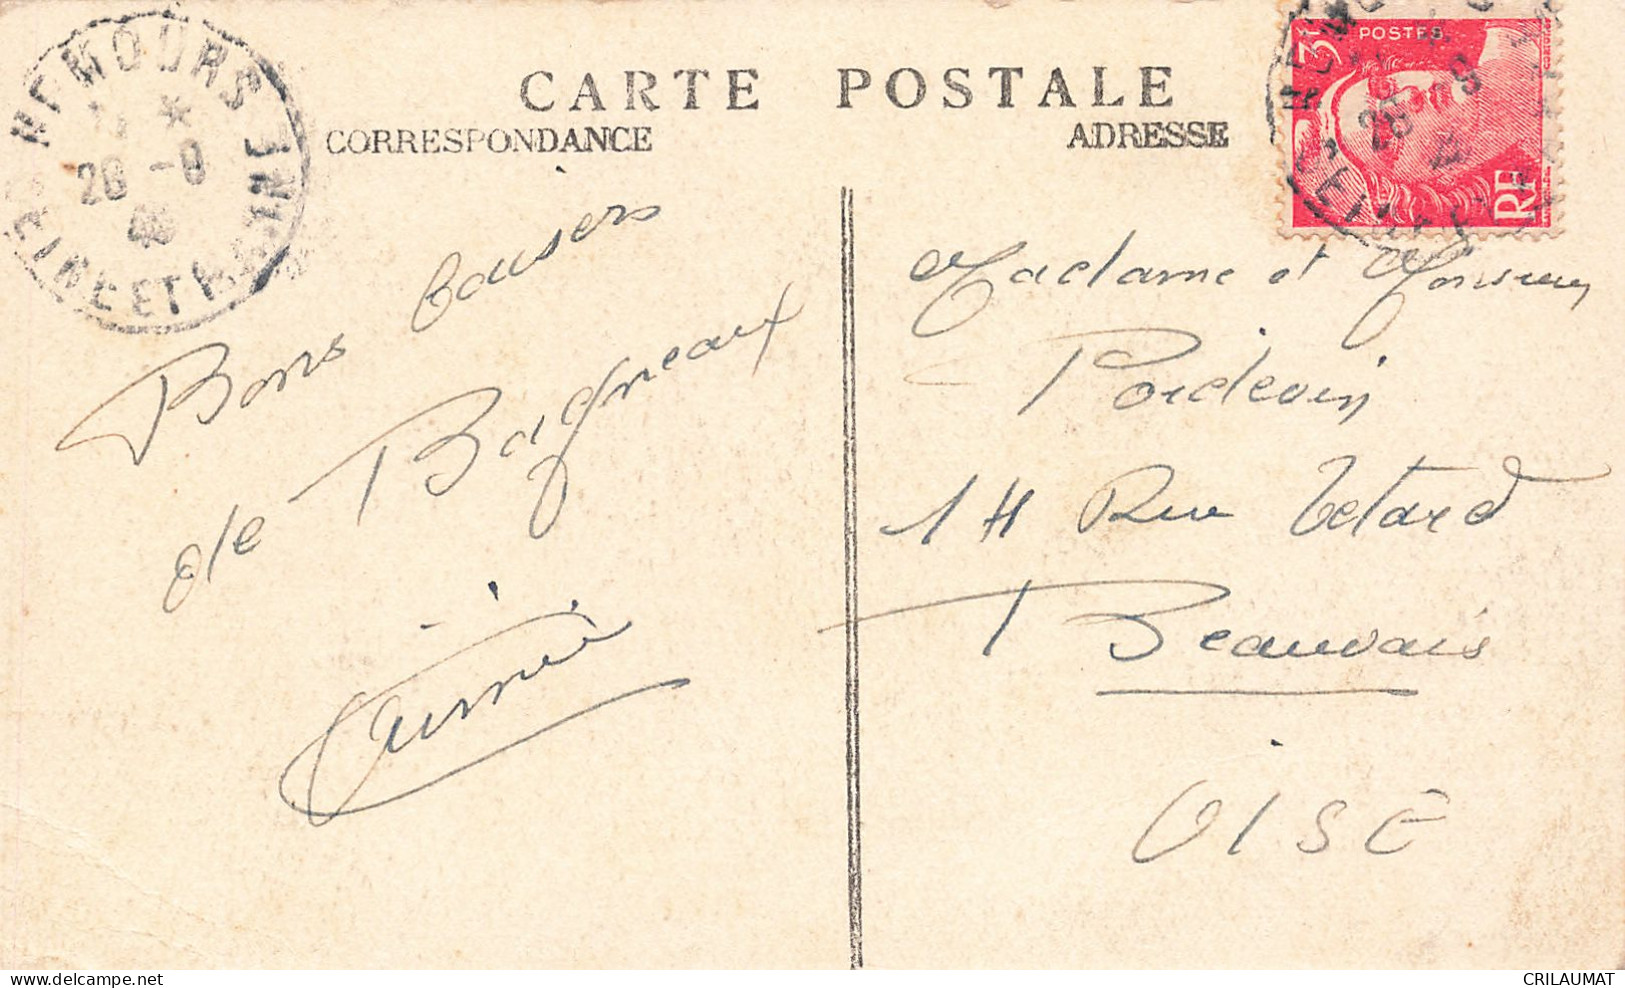 NEMOURS
*
26 -9
46
SEINE ET MARNE
CARTE POSTALE
CORRESPONDANCE
ADRESSE
3F
POSTES
RF
Bons baisers
de Bagneaux
Aimée
Madame et Monsieur
Poidevin
14 Rue Tetard
Beauvais
OISE
CRILAUMAT